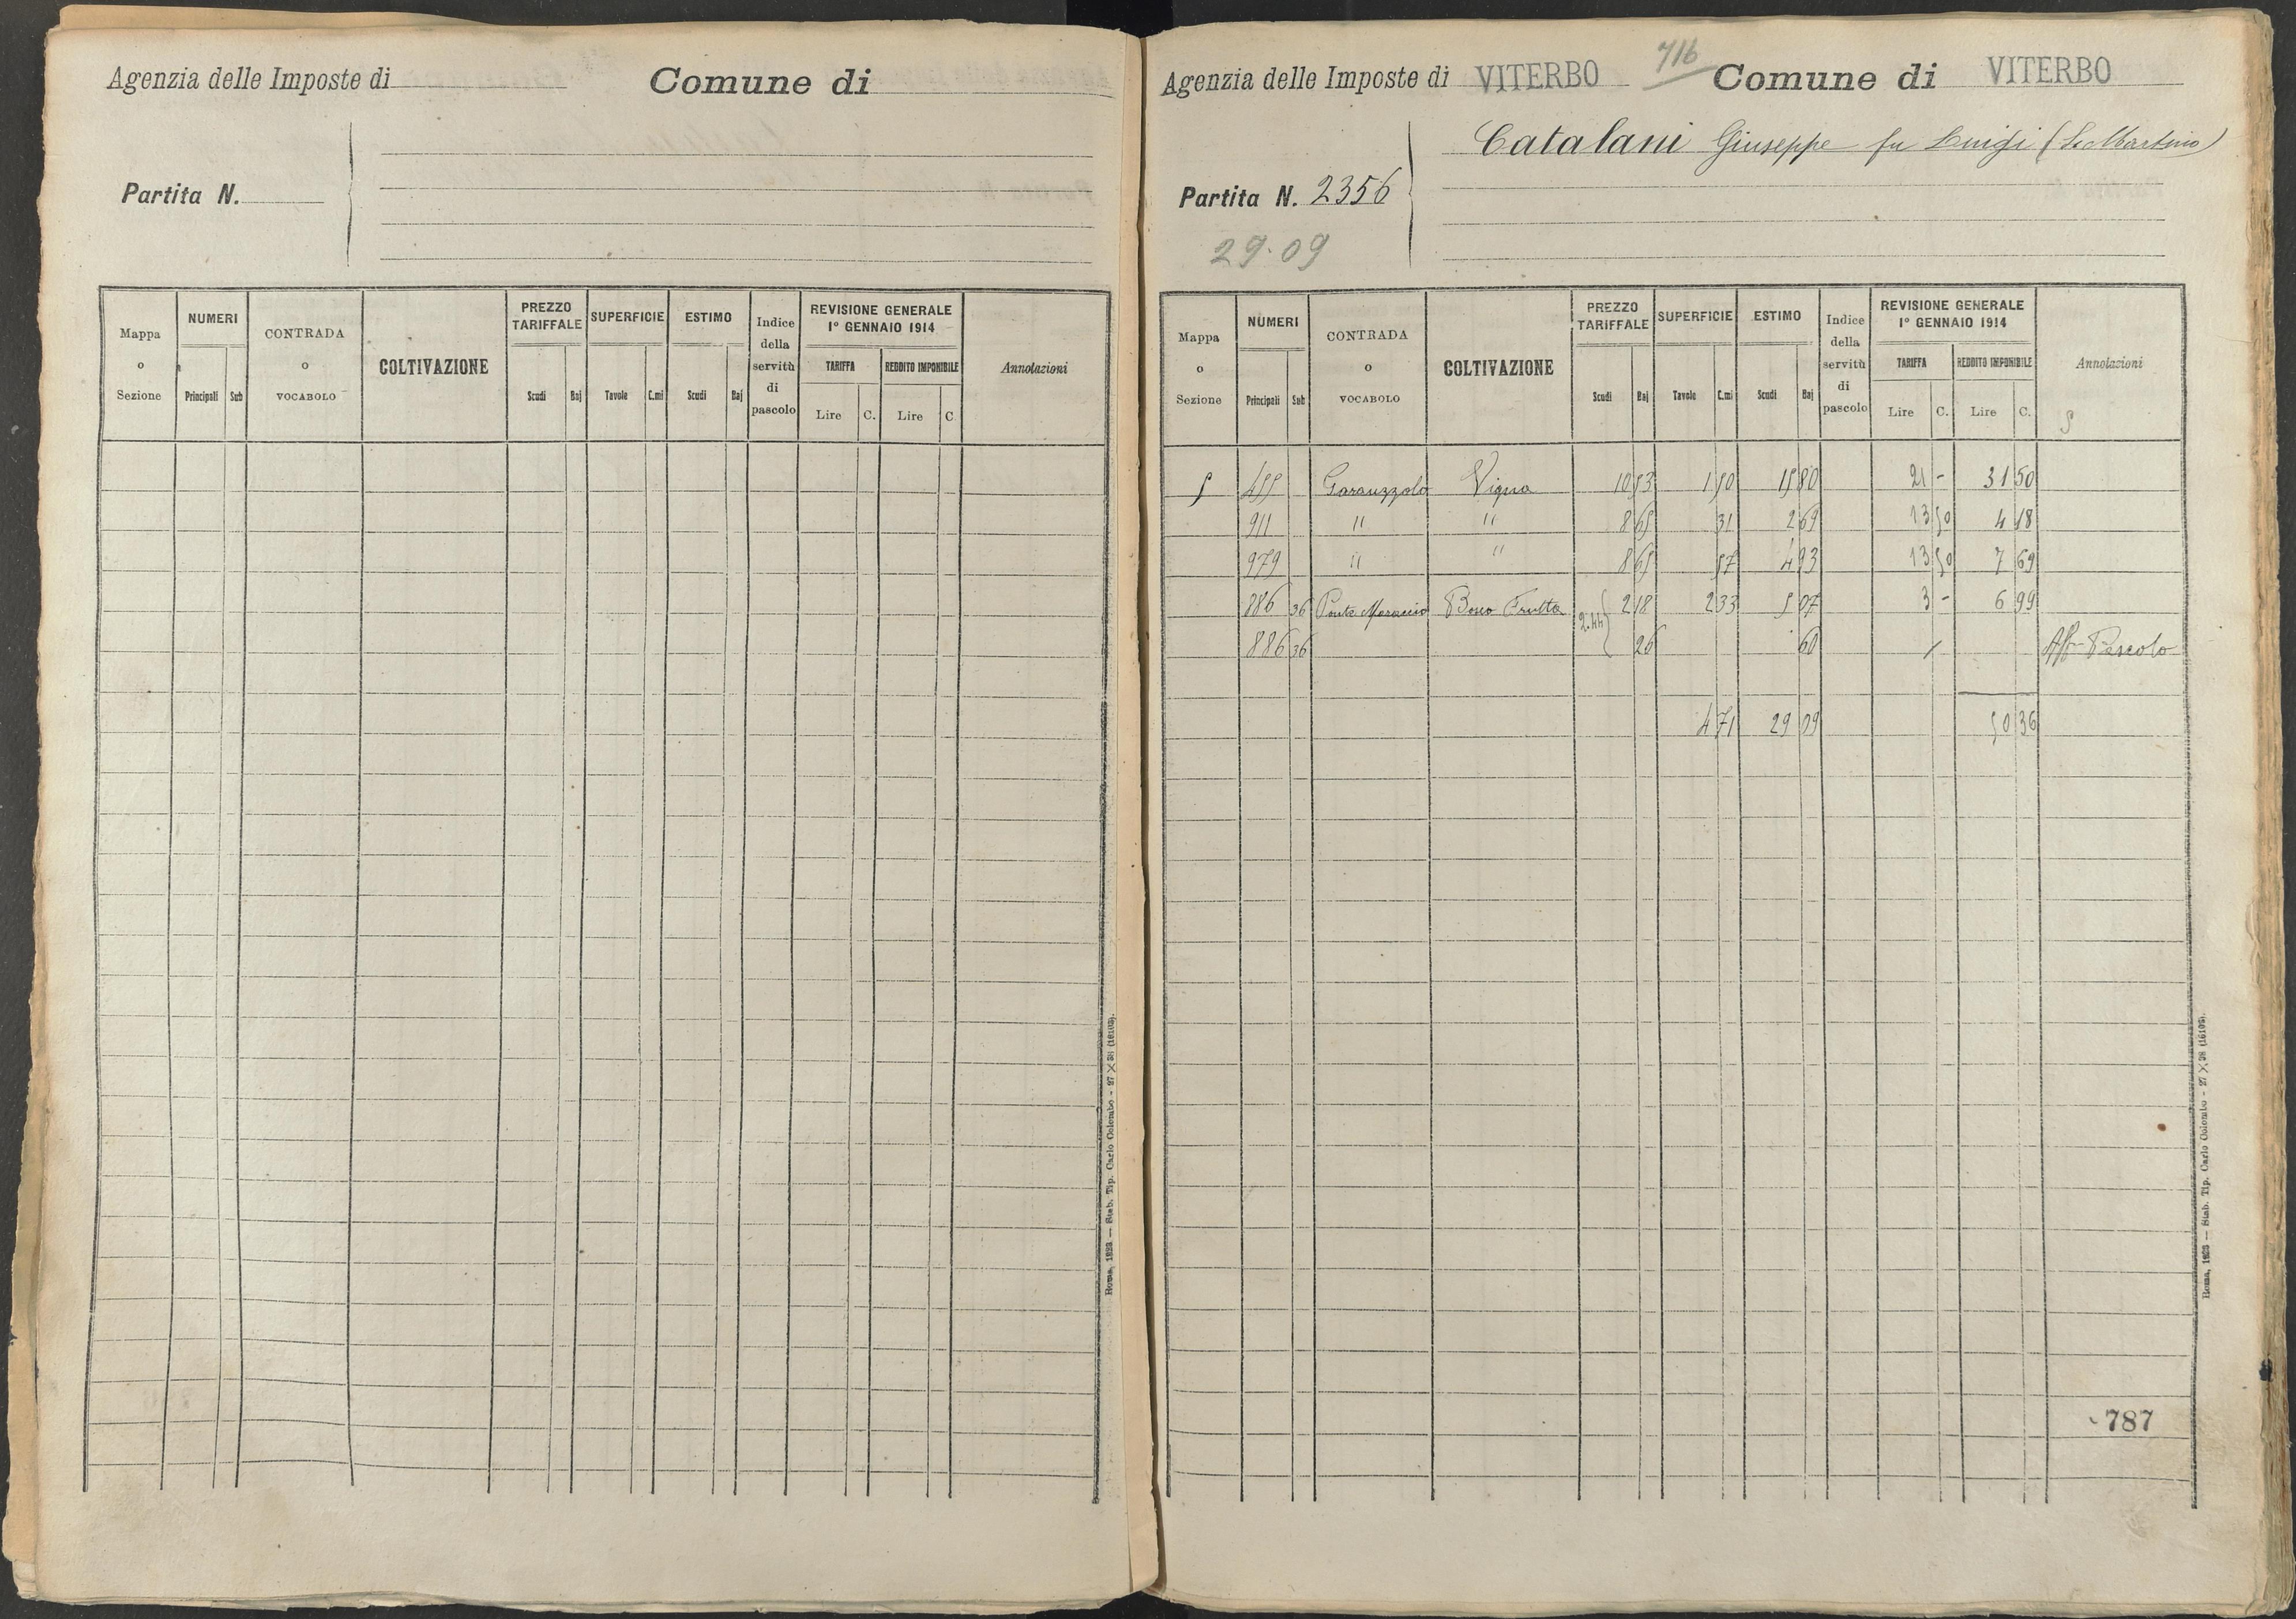 Agenzia delle Imposte di Comune di
Partita N.
Mappa o Sezione NUMERI Principali Sub CONTRADA o VOCABOLO COLTIVAZIONE PREZZO TARIFFALE Scudi Baj SUPERFICIE Tavole C.mi ESTIMO Scudi Baj Indice della servitù di pascolo REVISIONE GENERALE 1° GENNAIO 1914 TARIFFA Lire C. REDDITO IMPONIBILE Lire C. Annotazioni
Roma, 1923 — Stab. Tip. Carlo Colombo - 27 X 38 (16105).
716
Agenzia delle Imposte di VITERBO Comune di VITERBO
Catalani Giuseppe fu Luigi (S. Martino)
Partita N. 2356
29.09
Mappa o Sezione NUMERI Principali Sub CONTRADA o VOCABOLO COLTIVAZIONE PREZZO TARIFFALE Scudi Baj SUPERFICIE Tavole C.mi ESTIMO Scudi Baj Indice della servitù di pascolo REVISIONE GENERALE 1° GENNAIO 1914 TARIFFA Lire C. REDDITO IMPONIBILE Lire C. Annotazioni
5 455 Garauzzolo Vigna 10 53 1 50 15 80 21 - 31 50
911 " " 8 65 31 2 69 13 50 4 18
979 " " 8 65 57 4 93 13 50 7 69
886 36 Ponte Bosco Frutta 2.44 2 18 2 33 5 07 3 - 6 99
886 36 26 60 / Aff. Pascolo
4 71 29 09 50 36
787
Roma, 1923 — Stab. Tip. Carlo Colombo - 27 X 38 (16105).